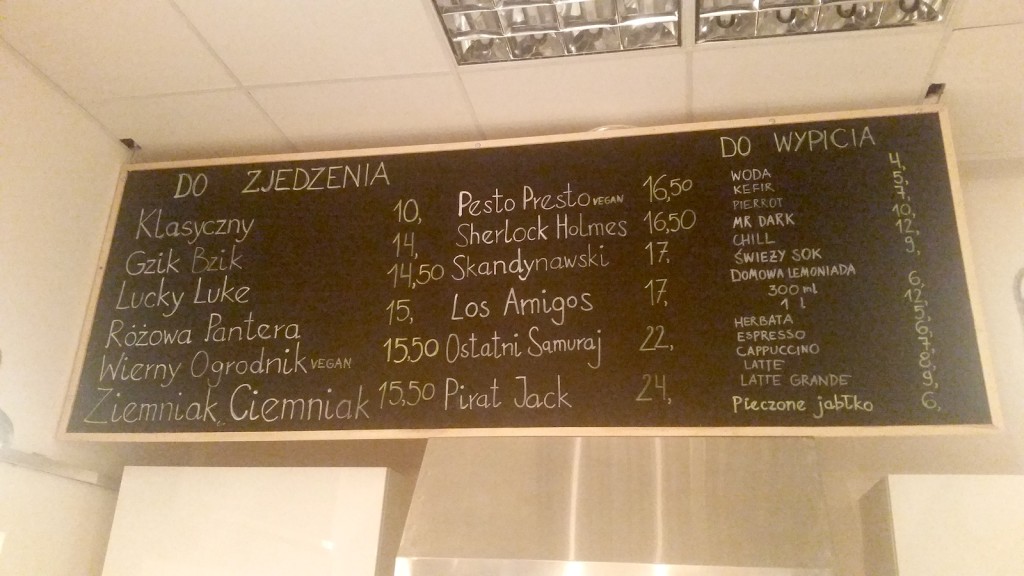 DO ZJEDZENIA
Klasyczny 10,
Gzik Bzik 14,
Lucky Luke 14,50
Różowa Pantera 15,
Wierny Ogrodnik VEGAN 15,50
Ziemniak „Ciemniak 15,50
Pesto Presto VEGAN 16,50
Sherlock Holmes 16,50
Skandynawski 17,
Los Amigos 17,
Ostatni Samuraj 22,
Pirat Jack 24,
DO WYPICIA
WODA 4,
KEFIR 5,
PIERROT 7,
MR DARK 10,
CHILL 12,
ŚWIEŻY SOK 9,
DOMOWA LEMONIADA
300 ml 6,
1 l 12,
HERBATA 5,
ESPRESSO 6,
CAPPUCCINO 7,
LATTE 8,
LATTE GRANDE 9,
Pieczone jabłko 6,